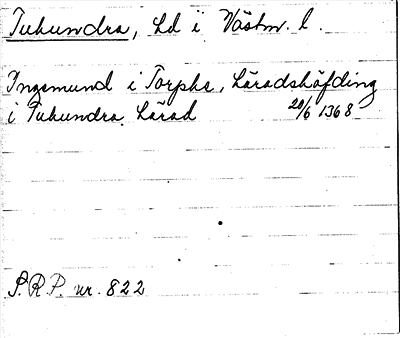 Tuhundra, Hd i Västm. l.
Ingemund i Torpke, häradshöfding
i Tuhundra härad 20/6 1368
S.R.P. nr. 822